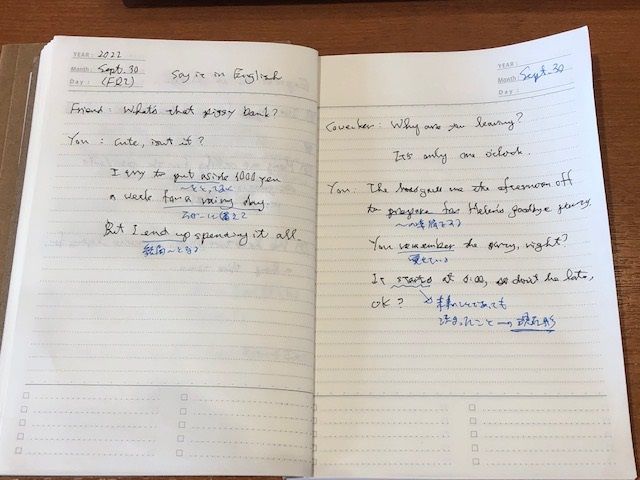 YEAR: 2022
Month: Sept. 30
Day: (FRI)
Say it in English
Friend: What's that piggy bank?
You: Cute, isn't it?
I try to put aside 1000 yen
a week for a rainy day.
But I end up spending it all.
結局〜となる
YEAR:
Month: Sept. 30
Day:
Coworker: Why are you leaving?
It's only one o'clock.
You: The boss gave me the afternoon off
to prepare for Helen's goodbye party.
〜の準備をする
You remember the party, right?
覚えている
It starts at 6:00, so don't be late,
OK?
未来のことであっても
決まったこと→現在形